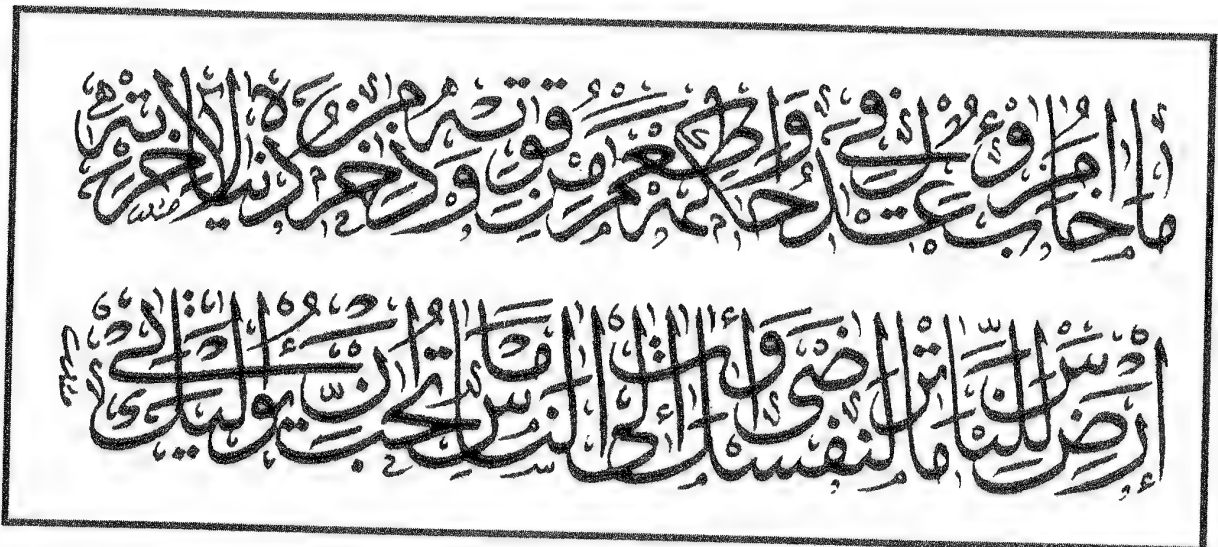 ما خاب امرؤ عدل في حكمه وأطعم من قوته وذخر من دنياه لآخرته
إرض للناس ما ترضى لنفسك وائت إلى الناس ما تحب أن يؤتى إليك